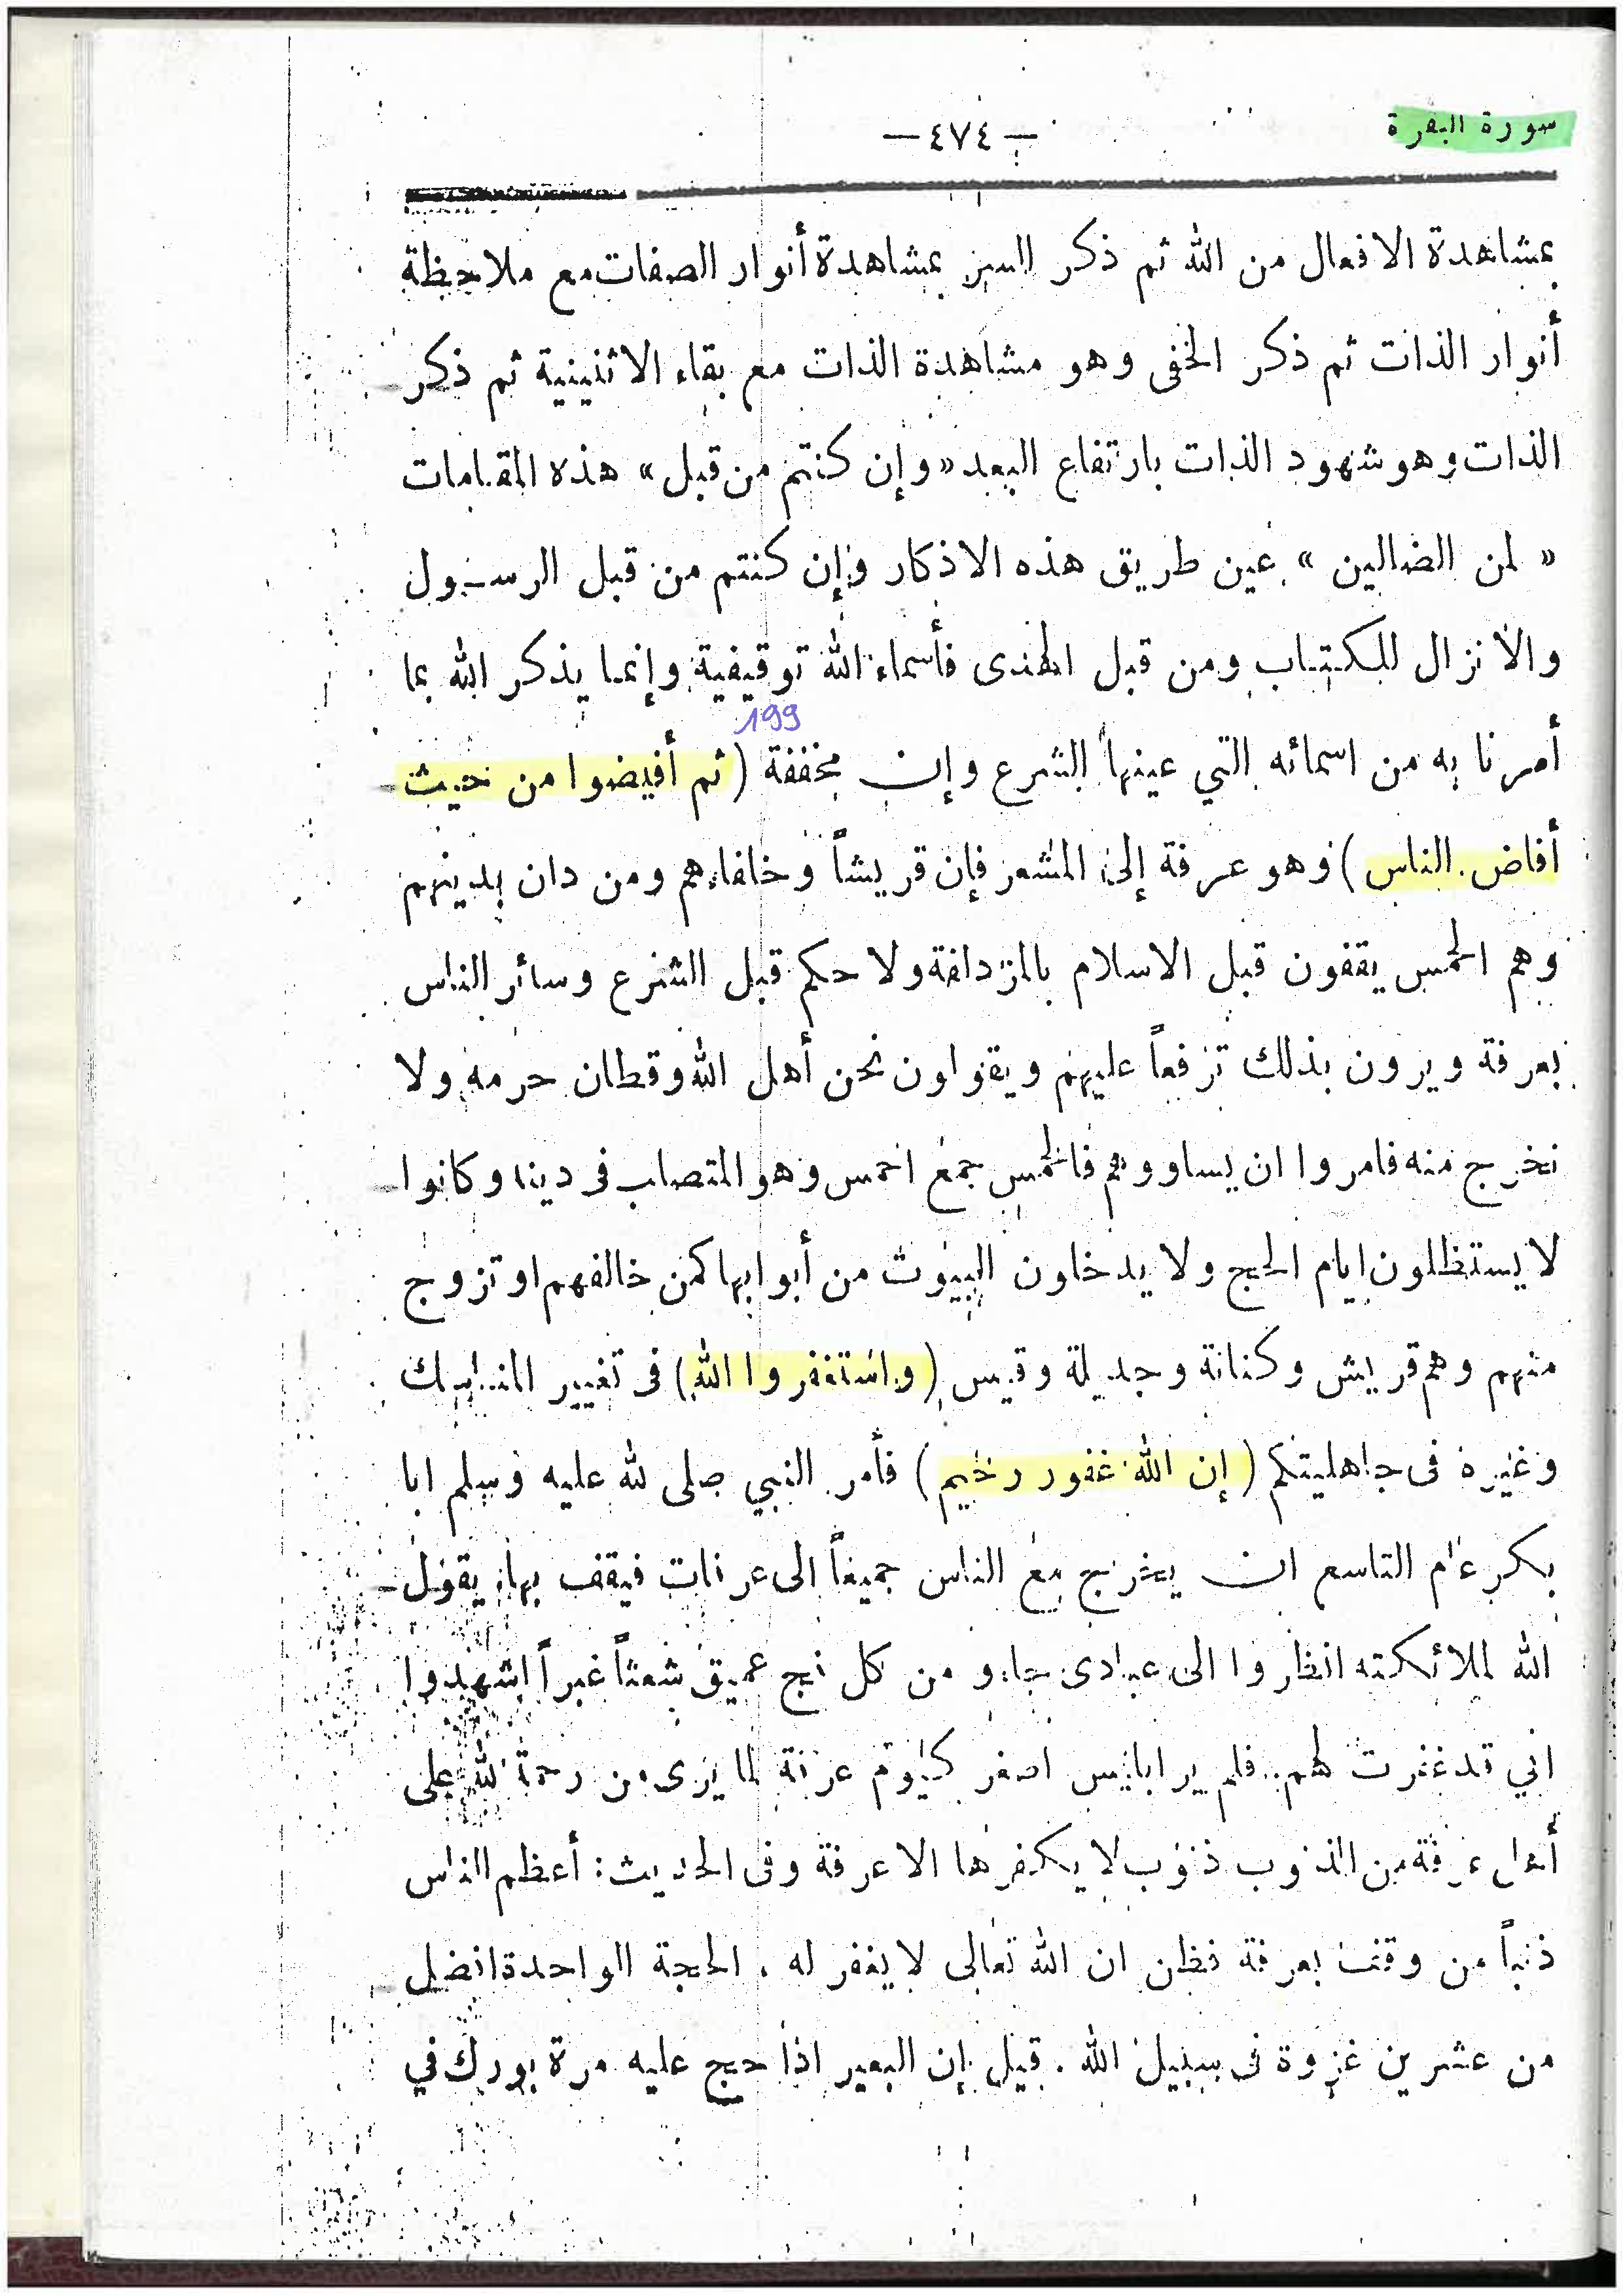 سورة البقرة
— ٤٧٤ —
بمشاهدة الافعال من الله ثم ذكر السر بمشاهدة أنوار الصفات مع ملاحظة
أنوار الذات ثم ذكر الخفى وهو مشاهدة الذات مع بقاء الاثنينية ثم ذكر
الذات وهو شهود الذات بارتفاع البعد «وإن كنتم من قبل» هذه المقامات
« لمن الضالين » عين طريق هذه الاذكار وإن كنتم من قبل الرسول
والانزال للكتاب ومن قبل الهدى فأسماء الله توقيفية وإنما يذكر الله بما
199
أمرنا به من اسمائه التي عينها الشرع وإن مخففة (ثم أفيضوا من حيث
أفاض الناس) وهو عرفة إلى المشعر فإن قريشاً وخلفاءهم ومن دان بدينهم
وهم الحمس يقفون قبل الاسلام بالمزدلفة ولا حكم قبل الشرع وسائر الناس
بعرفة ويرون بذلك ترفعاً عليهم ويقولون نحن أهل الله وقطان حرمه ولا
نخرج منه فامروا ان يساووهم فالحمس جمع احمس وهو المتصلب فى دينه وكانوا
لا يستظلون ايام الحج ولا يدخلون البيوت من أبوابها كمن خالفهم او تزوج
منهم وهم قريش وكنانة وجديلة وقيس (واستغفروا الله) فى تغيير المناسك
وغيره فى جاهليتكم (إن الله غفور رحيم) فأمر النبي صلى الله عليه وسلم ابا
بكر عام التاسع ان يخرج مع الناس جميعاً الى عرفات فيقف بها، يقول
الله لملائكته انظروا الى عبادى جاءو من كل فج عميق شعثاً غبراً اشهدوا
اني قد غفرت لهم. فلم ير ابليس اصغر كيوم عرفة لما يرى من رحمة الله على
أهل عرفة من الذنوب ذنوب لا يكفرها الا عرفة وفى الحديث: أعظم الناس
ذنباً من وقف بعرفة فظن ان الله تعالى لا يغفر له . الحجة الواحدة افضل
من عشرين غزوة فى سبيل الله . قيل إن البعير اذا حج عليه مرة بورك في